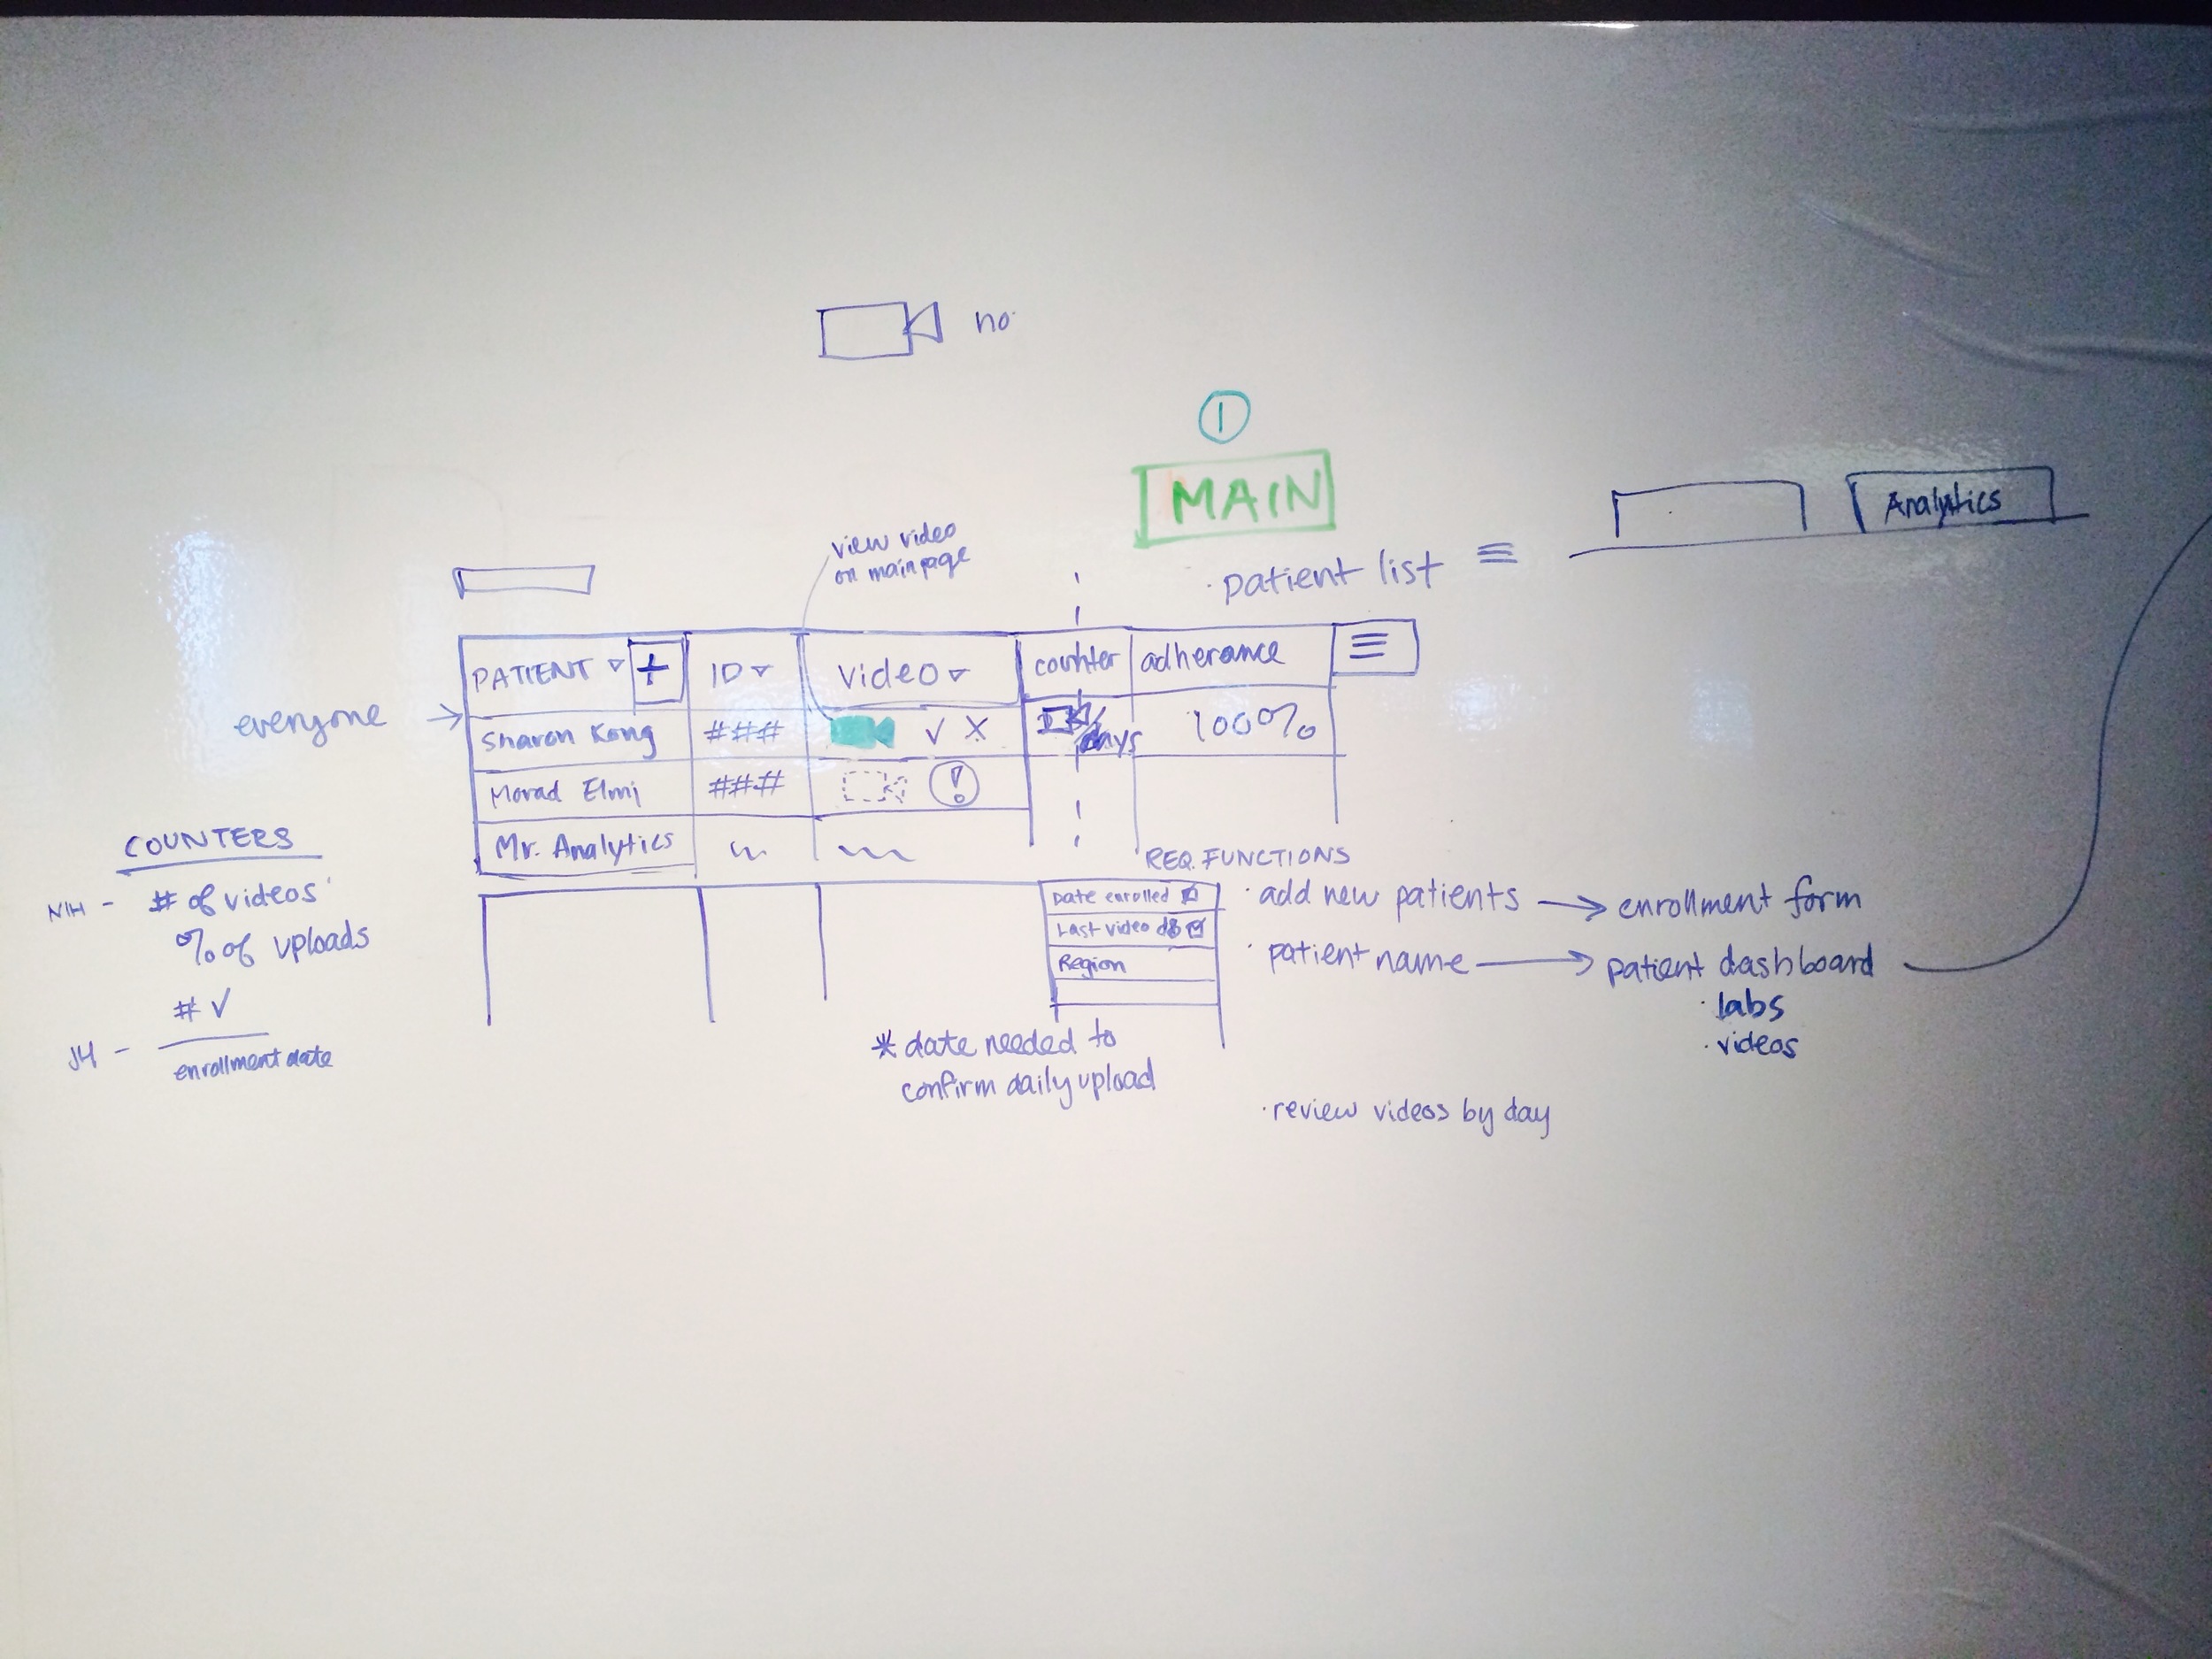 no
1
MAIN
Analytics
view video
on main page
patient list
PATIENT + ID video counter adherance
everyone
Sharon Kong ### ✓ X days 100%
Morad Elmi ### !
Mr. Analytics
COUNTERS
NIH - # of videos
% of uploads
# ✓
JH -
enrollment date
REQ. FUNCTIONS
Date enrolled
Last video
Region
· add new patients → enrollment form
· patient name → patient dashboard
· labs
· videos
* date needed to
confirm daily upload
· review videos by day